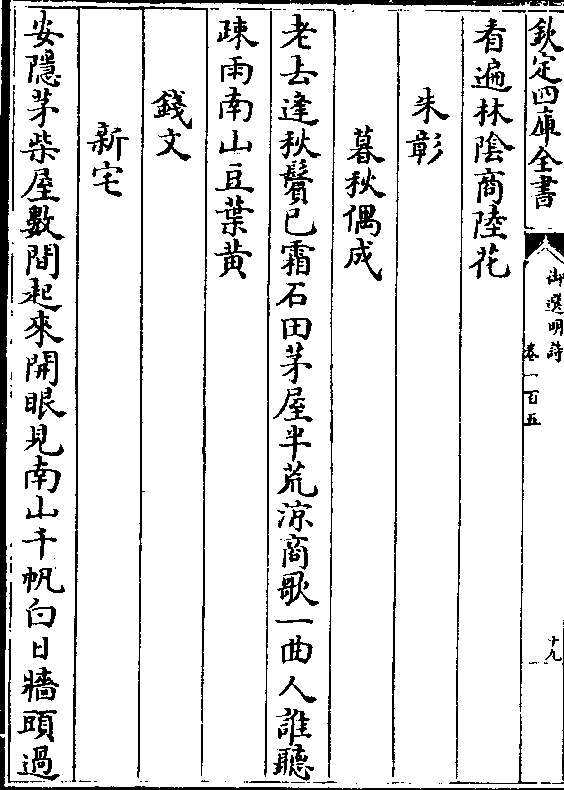 欽定四庫全書
御選明詩
卷一百五
十九
看遍林陰商陸花
朱彰
暮秋偶成
老去逢秋鬢已霜石田茅屋半荒涼商歌一曲人誰聽
疎雨南山豆葉黄
錢文
新宅
安隱茅柴屋數間起來開眼見南山千帆白日牆頭過